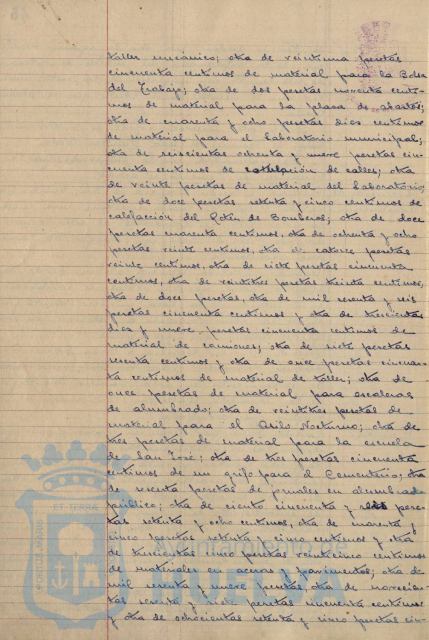 taller mecánico; otra de veintiuna pesetas
cincuenta centimos de material para la Bolsa
del Trabajo; otra de dos pesetas noventa centi-
mos de material para la plaza de abastos;
otra de cuarenta y ocho pesetas diez centimos
de material para el laboratorio municipal;
otra de seiscientas ochenta y nueve pesetas cin-
cuenta centimos de rotulación de calles; otra
de veinte pesetas de material del laboratorio;
otra de doce pesetas setenta y cinco centimos de
calefacción del Retén de Bomberos; otra de doce
pesetas cuarenta centimos, otra de ochenta y ocho
pesetas veinte centimos, otra de catorce pesetas
veinte centimos, otra de siete pesetas cincuenta
centimos, otra de veintitres pesetas treinta centimos,
otra de doce pesetas, otra de mil sesenta y seis
pesetas cincuenta centimos y otra de trescientas
diez y nueve pesetas cincuenta centimos de
material de camiones; otra de siete pesetas
sesenta centimos y otra de once pesetas cincuen-
ta centimos de material de taller; otra de
once pesetas de material para escaleras
de alumbrado; otra de veintitres pesetas de
material para el Asilo Nocturno; otra de
tres pesetas de material para la escuela
de San José; otra de tres pesetas cincuenta
centimos de un grifo para el Cementerio; otra
de sesenta pesetas de jornales en alumbrado
público; otra de ciento cincuenta y pese-
tas setenta y ocho centimos, otra de cuarenta y
cinco pesetas setenta y cinco centimos y otra
de trescientas cinco pesetas veinticinco centimos
de materiales en aceras y pavimentos; otra de
mil sesenta y nueve pesetas, otra de novecien-
tas sesenta y siete pesetas cincuenta centimos
y otra de ochocientas setenta y cinco pesetas cin-
ET TERRA